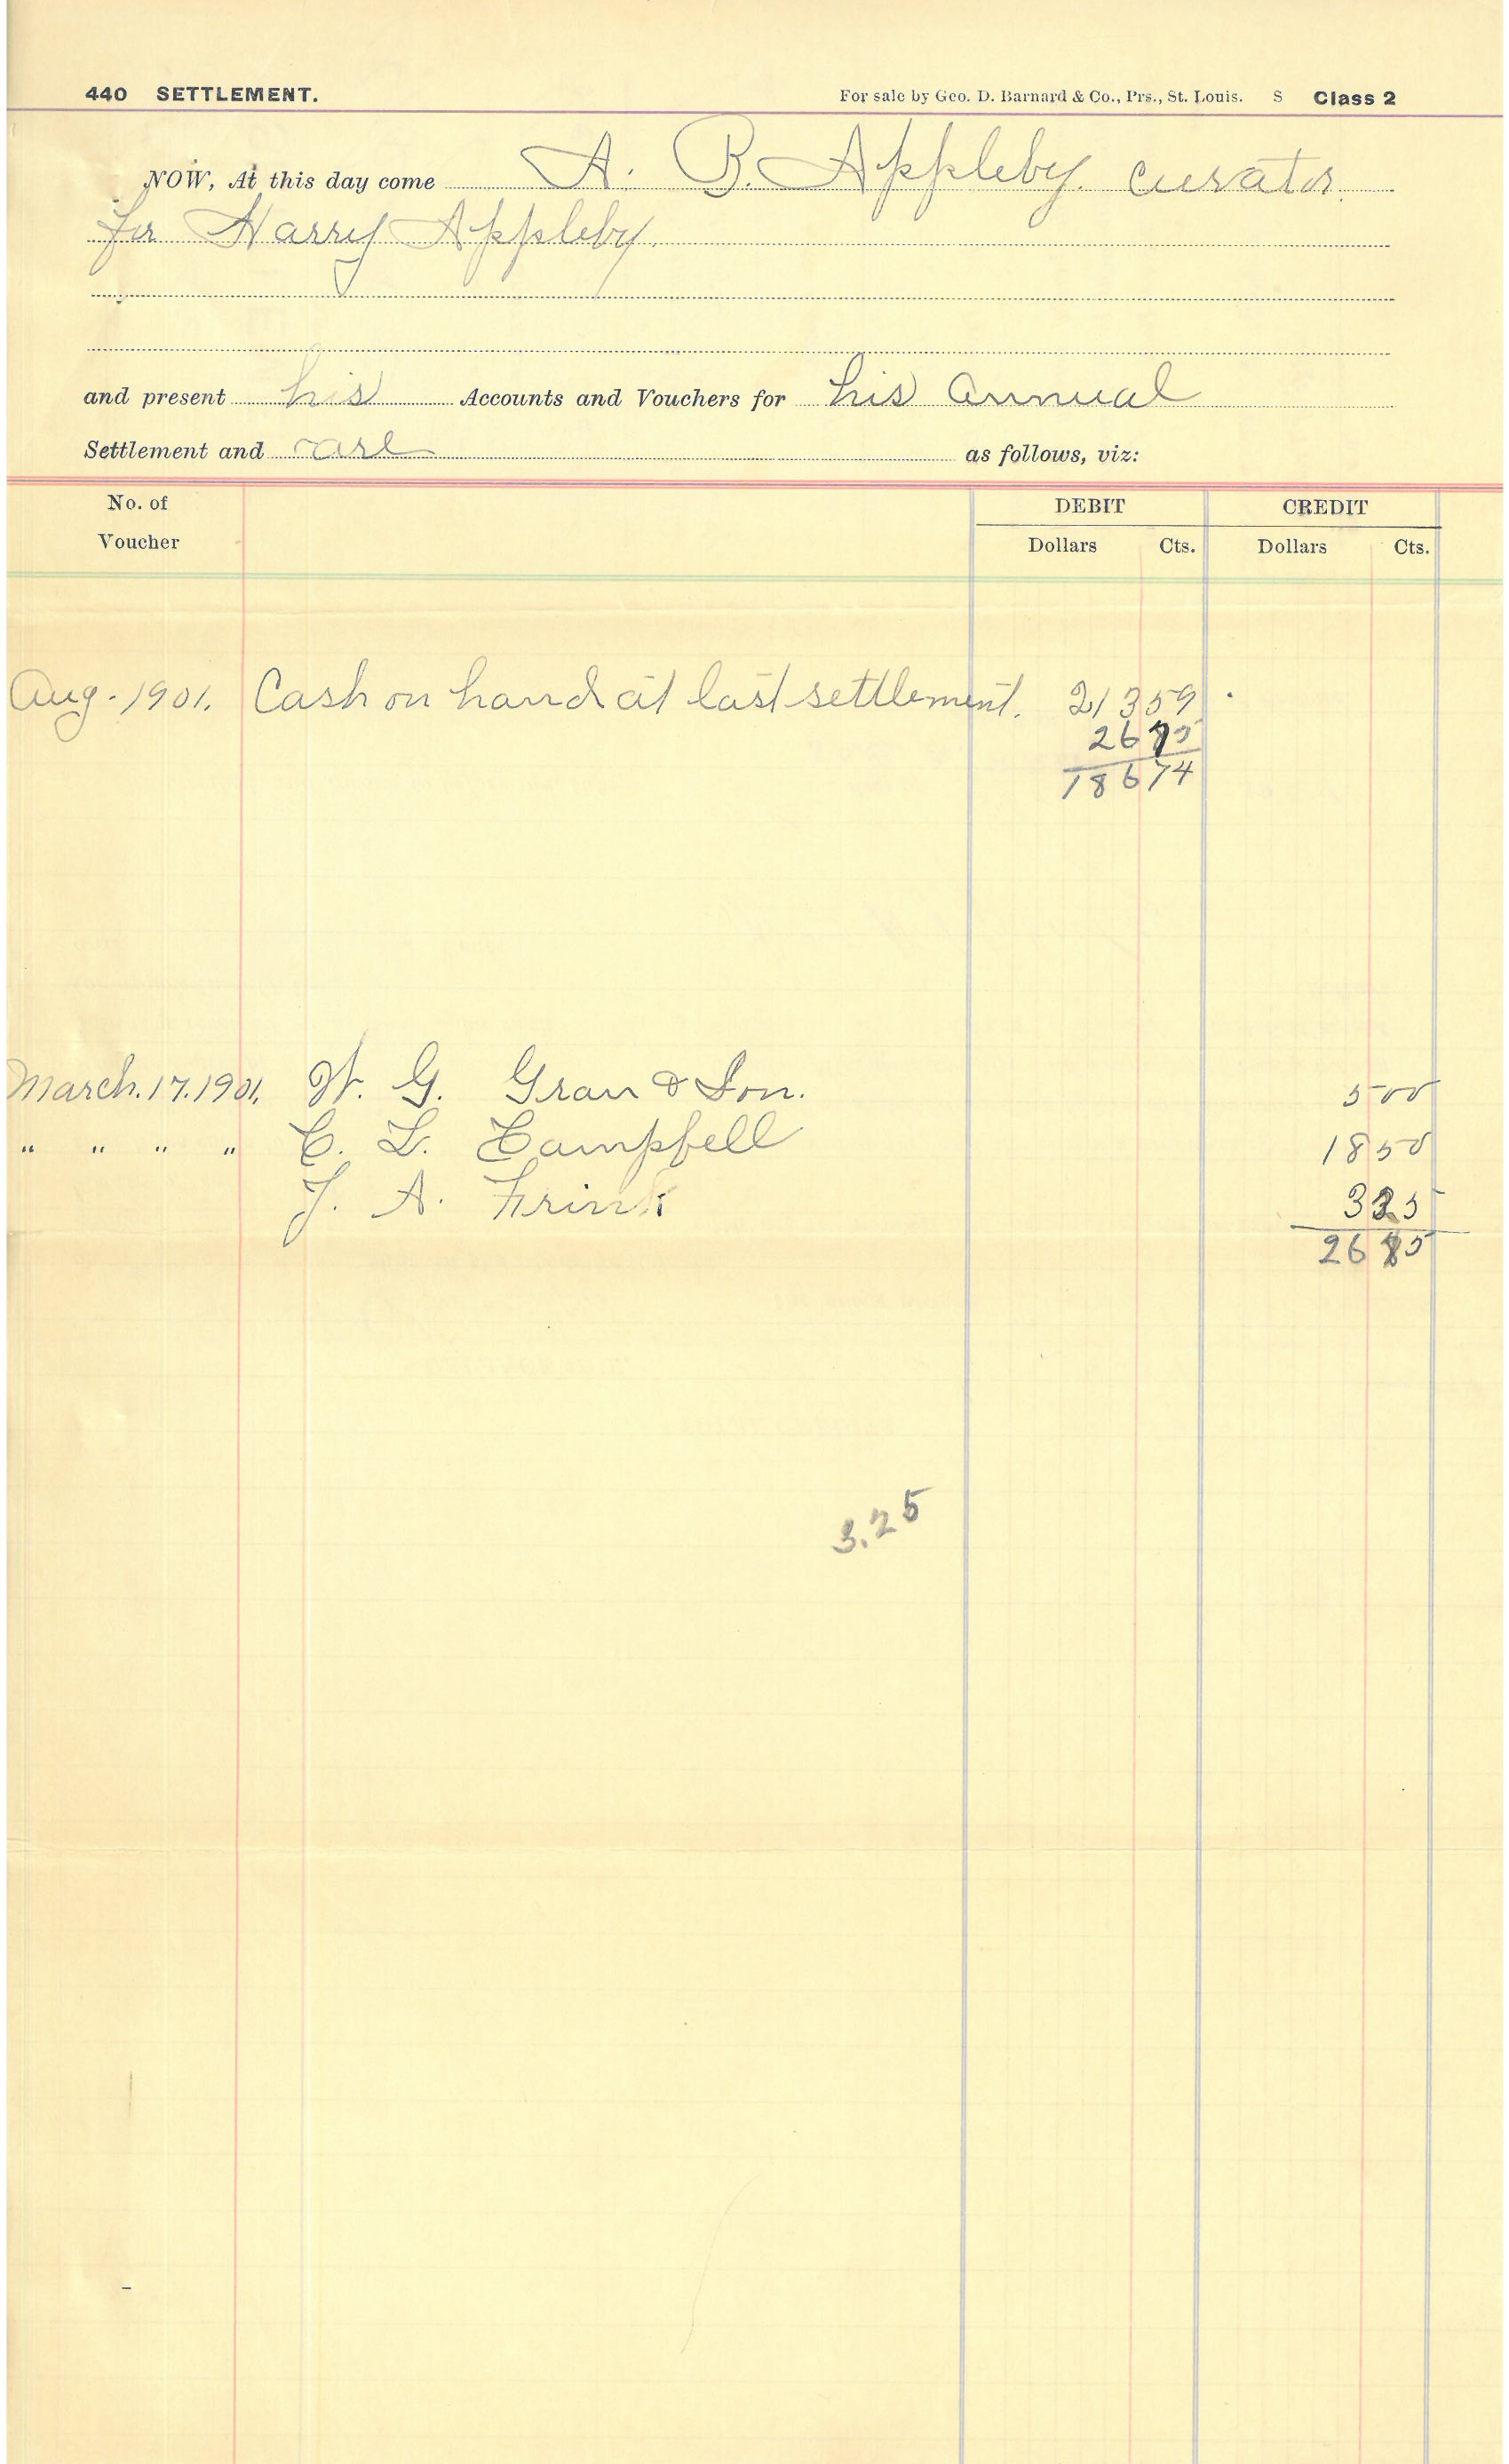 440 SETTLEMENT. For sale by Geo. D. Barnard & Co., Prs., St. Louis. S Class 2
NOW, At this day come A. B. Appleby. curator
for Harry Appleby.
and present his Accounts and Vouchers for his annual
Settlement and as follows, viz:
No. of Voucher DEBIT CREDIT
Dollars Cts. Dollars Cts.
Aug. 1901. Cash on hand at last settlement. 213 59
26
186 74
March. 17. 1901. W. G. & Son. 5 00
" " " " C. L. Campbell 18 50
J. A. Frink 3
26
3.25